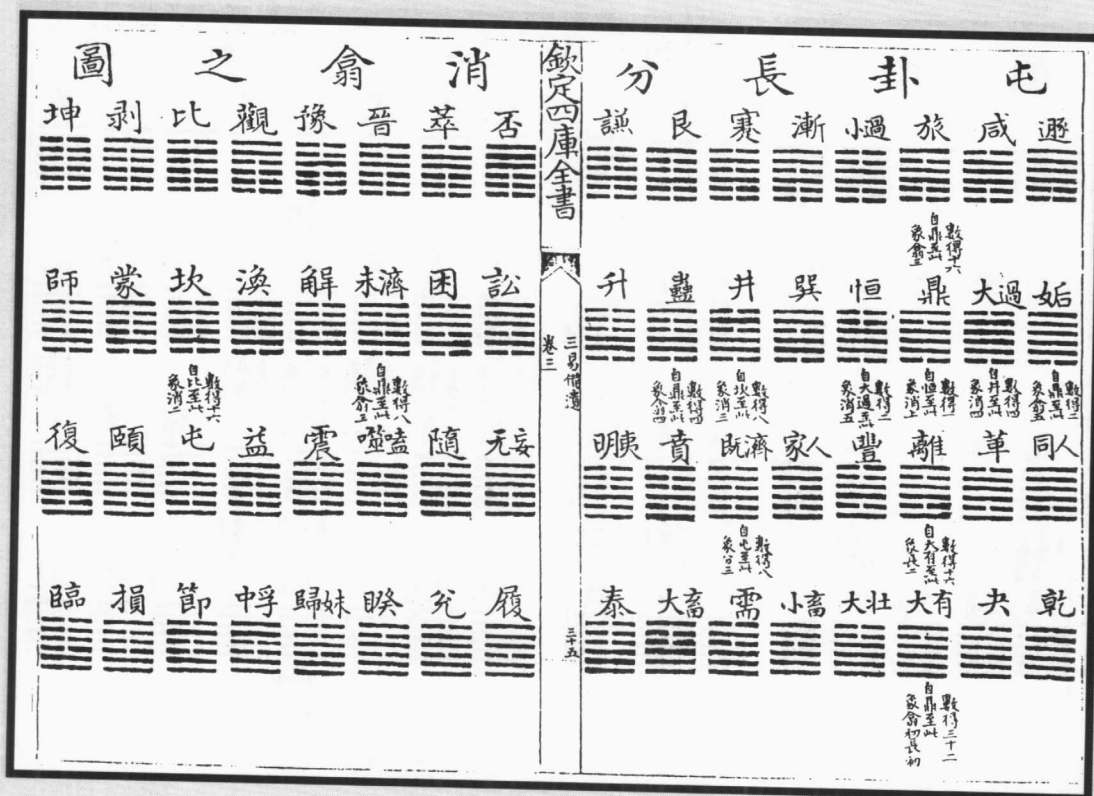 屯卦長分
遯 咸 旅 小過 漸 蹇 艮 謙
數得十六
自鼎至此
象翕二
姤 大過 鼎 恒 巽 井 蠱 升
數得二
自鼎至此
象翕五
數得四
自井至此
象消四
數得一
自恒至此
象消上
數得二
自大過至此
象消五
數得八
自坎至此
象消三
數得四
自鼎至此
象翕四
同人 革 離 豐 家人 既濟 賁 明夷
數得十六
自大有至此
象長二
數得八
自屯至此
象分三
乾 夬 大有 大壯 小畜 需 大畜 泰
數得三十二
自鼎至此
象翕初長初
欽定四庫全書
三易備遺
卷三
三十五
消翕之圖
否 萃 晉 豫 觀 比 剥 坤
訟 困 未濟 解 渙 坎 蒙 師
數得八
自鼎至此
象翕三
數得十六
自比至此
象消二
无妄 隨 噬嗑 震 益 屯 頤 復
履 兊 睽 歸妹 中孚 節 損 臨